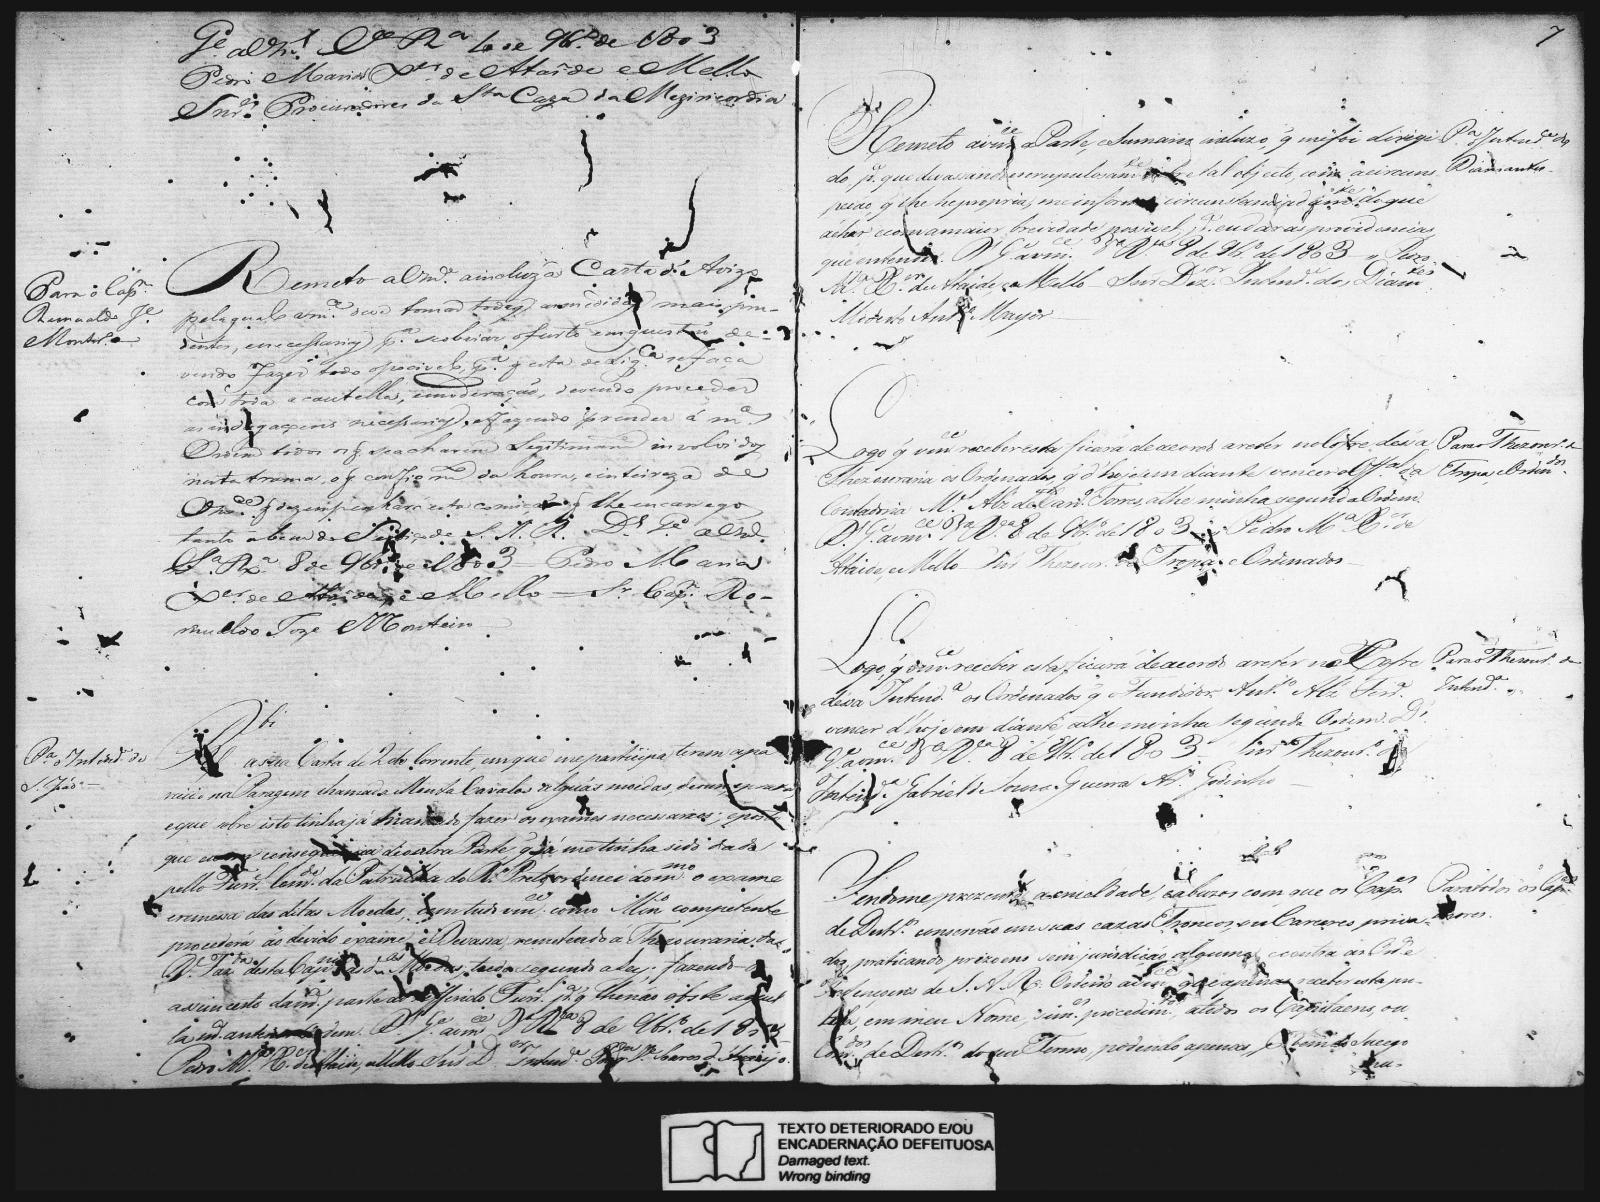 Ge. a Vm.ce Va. Ra. 6 de 9br.o de 1803
Pedro Maria Xer. de Ataide e Mello
Snr.es Procuradores da Sta Caza da Mizericordia
Para o Cap.m
Romualdo Je.
Montr.o
Remeto a Vm.ce a incluza Carta de Avizo
pela qual Vm.ce deve tomar todas as medidas mais pru-
dentes, e necessarias pa. descobrir o furto em questão de-
vendo fazer todo o pocivel, pa. q esta delig.ca se faça
com toda a cautella, e moderação, devendo proceder
as indagaçoens necessarias, e fazendo prender á ma.
Ordem todos os q se acharem Legitimam.e involvidos
nesta trama, o q confio na sua honra, e inteireza de
Vm.ce q dezempenhará esta comição q lhe encarrego
tanto a bem do Serviço de S. A. R. Ds. Ge. a Vm.
Va. Ra. 8 de 9br.o de 1803 — Pedro Maria
Xer. de Ataide, e Mello — Sr. Cap.m Ro-
mualdo Joze Monteiro
Pa. o Intend.e do
S. João —
Rbi
a sua Carta de 2 do Corrente, em que me participa terem apa
recido na Paragem chamada Menta Cavalos alguás moedas,
e que sobre isto tinha já mandado fazer os exames necessarios; e posto
que em consequencia de outra Parte q já me tinha sido dada
pello Furr. Com.de da Patrulha do Ro. Preto ordenei ao m.mo o exame
e remessa das ditas Moedas, com tudo Vm.ce como Min.o competente
procederá ao devido exame, e Devassa, remetendo a Thezouraria da
Rl. Faz.da desta Cap.nia as d.as Moedas, tudo segundo a Ley; fazendo-o
assim certo da m. parte ao refferido Furr.el pa. q lhe não obste aquel
la m. anterior Ordem. Ds. Ge. a vm.ce Va. Ra. 8 de 9br.o de 1803
Pedro Ma. Xer. de Ataide, e Mello Snr. Dr. Intend.e
7
Remeto a vm.ce a Parte, e Sumario incluzo, q me foi dirigi
do pa. que devasando escrupulosam.te sobre tal objecto, com a circuns
peção q lhe he propria, me informe circunstanciadam.te do que
achar com a maior brevidade possivel, pa. eu dar as providencias
que entender. Ds. Ge. a vm.ce Va. Ra. 8 de 9br.o de 1803 — Pedro
Ma. Xer. de Ataide, e Mello — Snr. Dez.or Intend.e dos Diam.tes
Modesto Ant.o Mayer —
Pa. o Intend.e dos
Diamantes —
Logo q vm.ce receber esta ficará de acordo a reter no Cofre dessa
Thezouraria os Ordenados, q d'hoje em diante vencer o Offal. da
Contadoria Ml. Alz de Torres, athe minha segunda Ordem
Ds. Ge. a vm.ce Va. Ra. 8 de 9br.o de 1803 — Pedro Ma. Xer. de
Ataide, e Mello — Snr. Thezour.o da Tropa e Ordenados —
Para o Thezour.o da
Tropa, e Orden.dos
Logo, q vm.ce receber esta, ficará de acordo a reter no Cofre
dessa Intend.a os Ordenados q o Fundidor Ant.o Alz Ferr.
vencer d'hoje em diante athe minha segunda Ordem. Ds.
Ge. a vm.ce Va. Ra. 8 de 9br.o de 1803 — Snr. Thezour.o
Intend.a Gabriel de Souza Guerra Ar. Godinho —
Para o Thezour.o da
Intend.a
Sendome prezente a crueldade, e abuzos com que os Cap.es
de Destr.o conservão em suas cazas Troncos, ou Carceres priva-
dos, praticando prizoens sem jurisdição alguma, e contra as Ord.s
de S. A. R. Ordeno a vm.ce q apenas receber esta pu-
em meu Nome, a todos os Capitaens, ou
Com.des de Destr.o do seu Termo, podendo apenas, pa. o bem do Socego
Para todos os Cap.es
mores.
TEXTO DETERIORADO E/OU
ENCADERNAÇÃO DEFEITUOSA
Damaged text.
Wrong binding